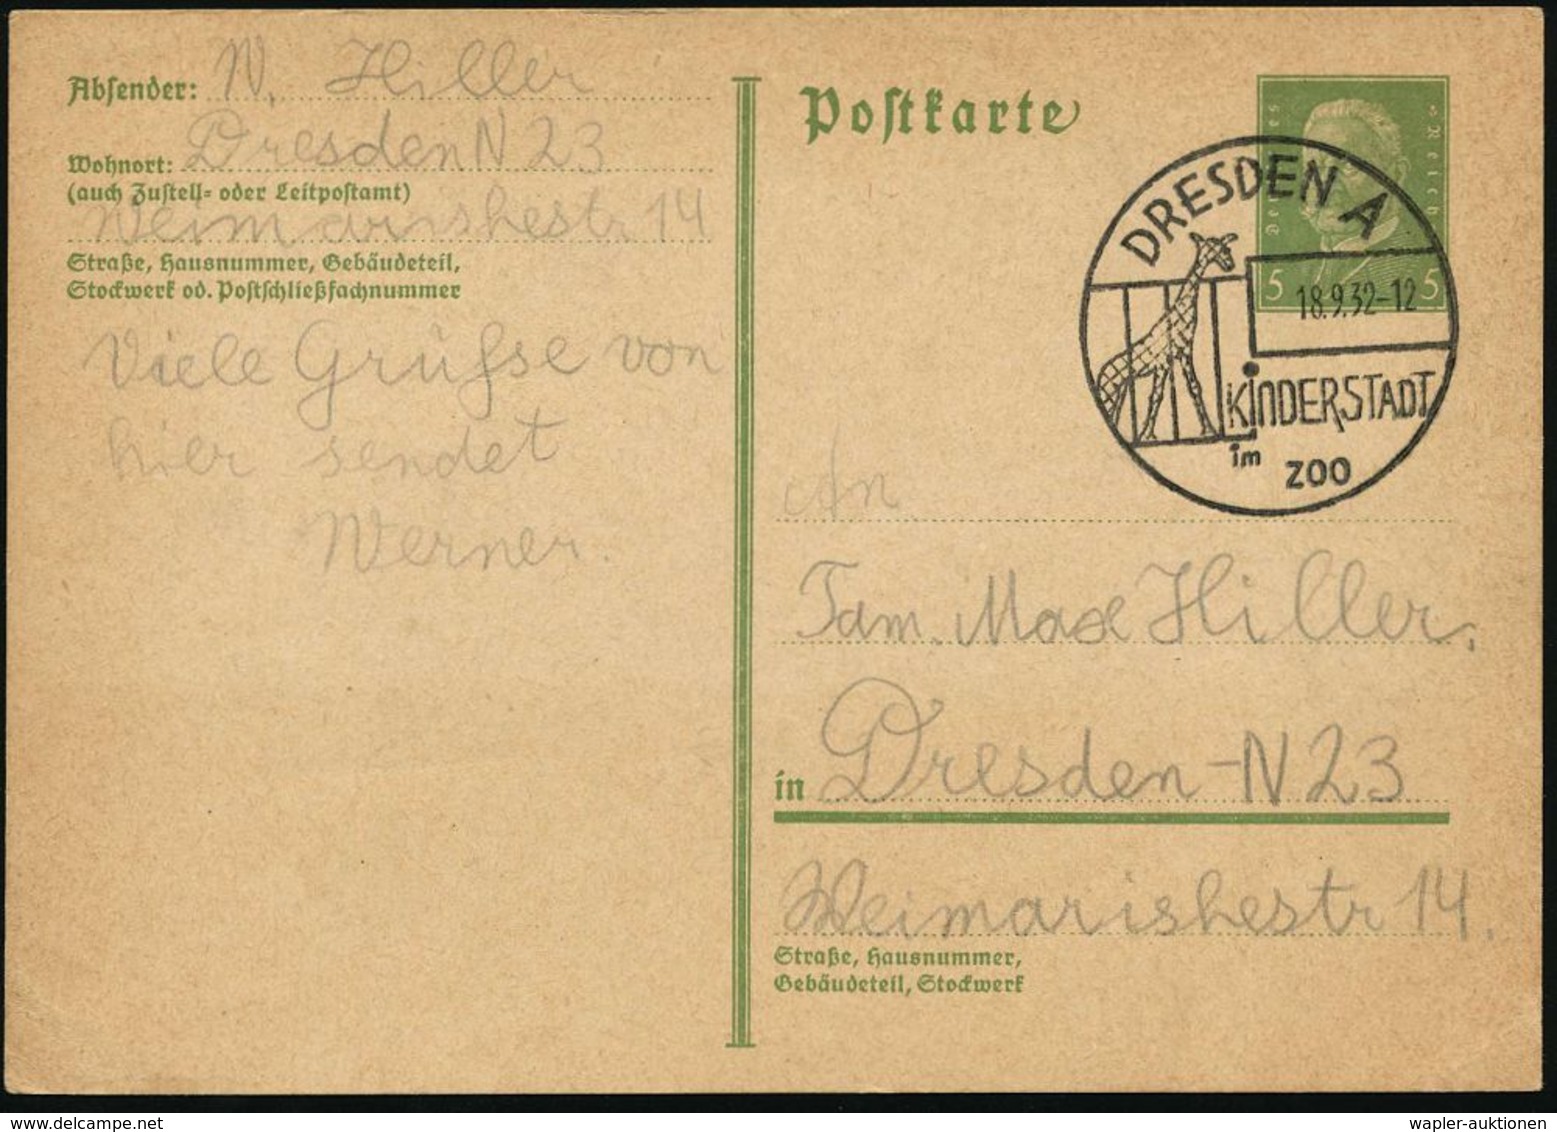 Absender: W. Hiller
Wohnort: Dresden N 23
(auch Zustell- oder Leitpostamt)
Weimarishestr 14
Straße, Hausnummer, Gebäudeteil,
Stockwerk od. Postschließfachnummer
Viele Grüße von
hier sendet
Werner.
Postkarte
Deutsches Reich
5 5
DRESDEN A
18.9.32-12
KINDERSTADT
im ZOO
An
Fam. Max Hiller,
in Dresden-N 23
Weimarishestr 14.
Straße, Hausnummer,
Gebäudeteil, Stockwerk
wapler-auktionen